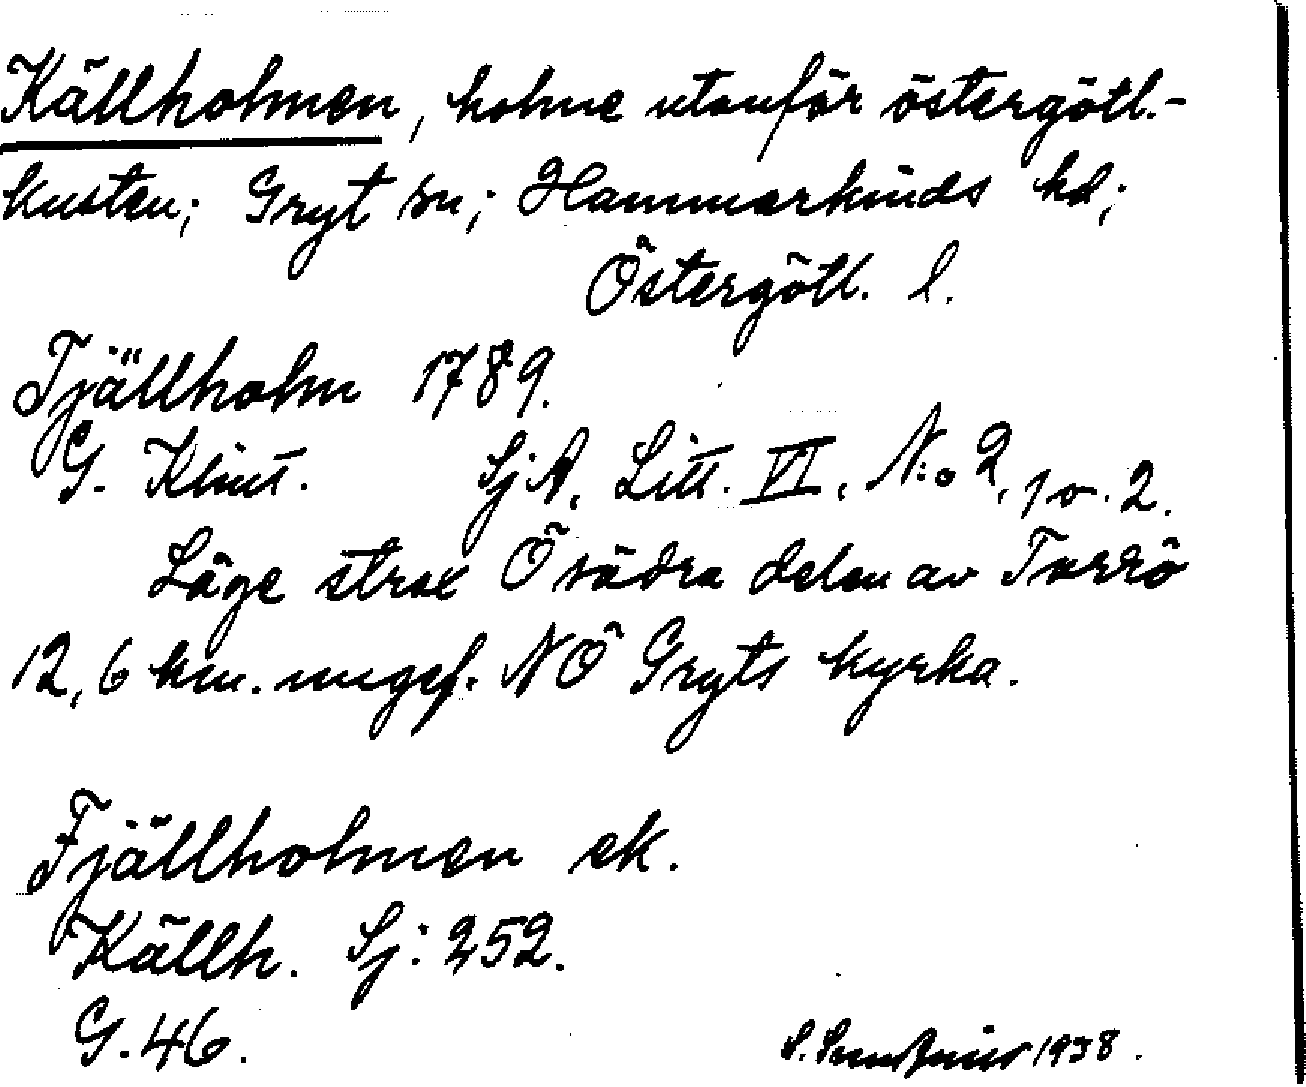 Källholmen, holme utanför östergötl.-
kusten; Gryt sn; Hammarkinds hd;
Östergötl. l.
Tjällholm 1789.
G. Klint. SjA, Litt. VI, N:o 2, 1 o. 2.
Läge strax Ö södra delen av Torrö
12,6 km. ungef. NÖ Gryts kyrka.
Fjällholmen ek.
Källh. Sj: 252.
G. 46.
S. 1938.